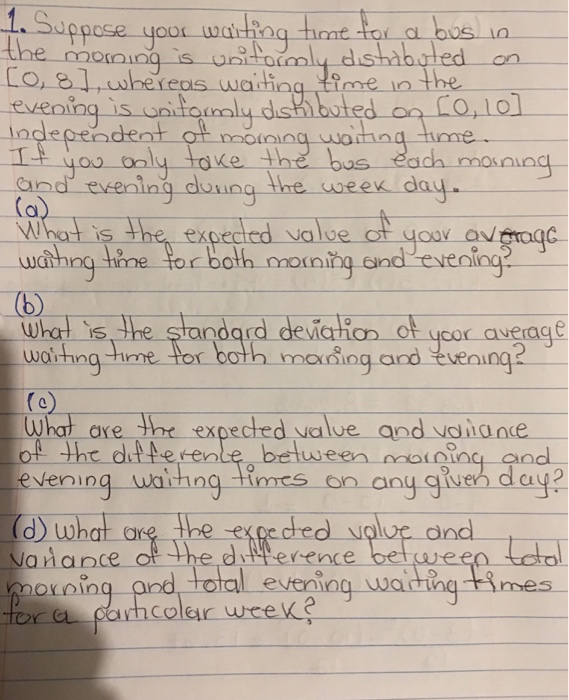 1. Suppose your waiting time for a bus in
the morning is uniformly distributed on
[0, 8], whereas waiting time in the
evening is uniformly distributed on [0,10]
independent of morning waiting time.
If you only take the bus each morning
and evening during the week day.
(a)
What is the expected value of your average
waiting time for both morning and evening?
(b)
What is the standard deviation of your average
waiting time for both morning and evening?
(c)
What are the expected value and variance
of the difference between morning and
evening waiting times on any given day?
(d) What are the expected value and
variance of the difference between total
morning and total evening waiting times
for a particular week?